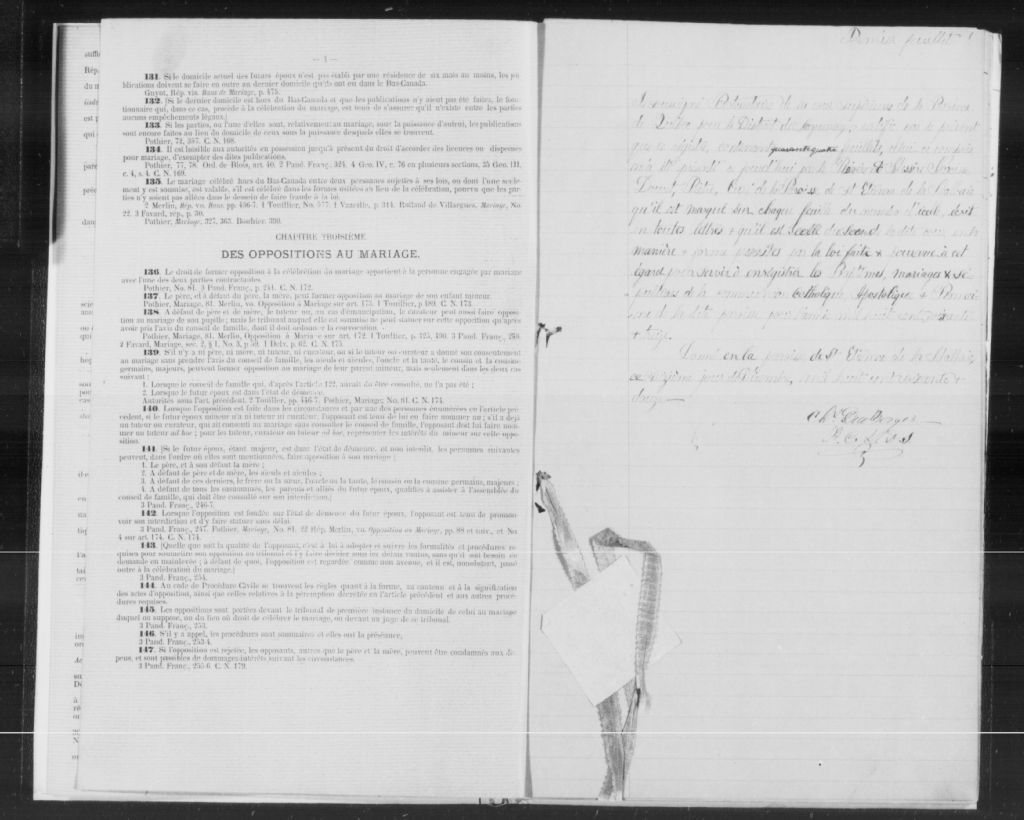 — 4 —
131. Si le domicile actuel des futurs époux n'est pas établi par une résidence de six mois au moins, les pu
blications doivent se faire en outre au dernier domicile qu'ils ont eu dans le Bas-Canada.
Guyot, Rép. vis. Bans de Mariage, p. 475.
132. [Si le dernier domicile est hors du Bas-Canada et que les publications n'y aient pas été faites, le fonc-
tionnaire qui, dans ce cas, procède à la célébration du mariage, est tenu de s'assurer qu'il n'existe entre les parties
aucuns empêchements légaux.]
133. Si les parties, ou l'une d'elles sont, relativement au mariage, sous la puissance d'autrui, les publications
sont encore faites au lieu du domicile de ceux sous la puissance desquels elles se trouvent.
Pothier, 72, 357. C. N. 168.
134. Il est loisible aux autorités en possession jusqu'à présent du droit d'accorder des licences ou dispenses
pour mariage, d'exempter des dites publications.
Pothier, 77, 78. Ord. de Blois, art. 40. 2 Pand. Franç., 324. 4 Geo. IV, c. 76 en plusieurs sections, 35 Geo. III,
c. 4, s. 4. C. N. 169.
135. Le mariage célébré hors du Bas-Canada entre deux personnes sujettes à ses lois, ou dont l'une seule-
ment y est soumise, est valable, s'il est célébré dans les formes usitées au lieu de la célébration, pourvu que les par-
ties n'y soient pas allées dans le dessein de faire fraude à la loi.
2 Merlin, Rép. vo. Bans pp. 456-7. 1 Toullier, No. 577. 1 Vazeille, p. 314. Rolland de Villargues, Mariage, No.
22. 3 Favard, rép., p. 30.
Pothier, Mariage, 327, 363. Bouhier, 390.
CHAPITRE TROISIEME.
DES OPPOSITIONS AU MARIAGE.
136. Le droit de former opposition à la célébration du mariage appartient à la personne engagée par mariage
avec l'une des deux parties contractantes.
Pothier, No. 81. 3 Pand. Franç., p. 241. C. N. 172.
137. Le père, et à défaut du père, la mère, peut former opposition au mariage de son enfant mineur.
Pothier, Mariage, 81. Merlin, vo. Opposition à Mariage sur art. 173. 1 Toullier, p. 489. C. N. 173.
138. A défaut de père et de mère, le tuteur ou, au cas d'émancipation, le curateur peut aussi faire opposi-
tion au mariage de son pupille; mais le tribunal auquel elle est soumise ne peut statuer sur cette opposition qu'après
avoir pris l'avis du conseil de famille, dont il doit ordonner la convocation.
Pothier, Mariage, 81. Merlin, Opposition à Mariage sur art. 172. 1 Toullier, p. 125, 490. 3 Pand. Franç., 250.
2 Favard, Mariage, sec. 2, § 1, No. 3, p 59. 1 Delv. p. 62. C. N. 175.
139. S'il n'y a ni père, ni mère, ni tuteur, ni curateur, ou si le tuteur ou curateur a donné son consentement
au mariage sans prendre l'avis du conseil de famille, les aïeuls et aïeules, l'oncle et la tante, le cousin et la cousine
germains, majeurs, peuvent former opposition au mariage de leur parent mineur, mais seulement dans les deux cas
suivant :
1. Lorsque le conseil de famille qui, d'après l'article 122, aurait du être consulté, ne l'a pas été ;
2. Lorsque le futur époux est dans l'état de démence.
Autorités sous l'art. précédent. 2 Toullier, pp. 446-7. Pothier, Mariage, No. 81. C. N. 174.
140. Lorsque l'opposition est faite dans les circonstances et par une des personnes énumérées en l'article pré-
cédent, si le futur époux mineur n'a ni tuteur ni curateur, l'opposant est tenu de lui en faire nommer un ; s'il a déjà
un tuteur ou curateur, qui ait consenti au mariage sans consulter le conseil de famille, l'opposant doit lui faire nom-
mer un tuteur ad hoc ; pour les tuteur, curateur ou tuteur ad hoc, représenter les intérêts du mineur sur cette oppo-
sition.
141. [Si le futur époux, étant majeur, est dans l'état de démence, et non interdit, les personnes suivantes
peuvent, dans l'ordre où elles sont mentionnées, faire opposition à son mariage :
1. Le père, et à son défaut la mère ;
2. A défaut de père et de mère, les aïeuls et aïeules ;
3. A défaut de ces derniers, le frère ou la sœur, l'oncle ou la tante, le cousin ou la cousine germains, majeurs ;
4. A défaut de tous les susnommés, les parents et alliés du futur époux, qualifiés à assister à l'assemblée du
conseil de famille, qui doit être consulté sur son interdiction.]
3 Pand. Franç., 246-7.
142. Lorsque l'opposition est fondée sur l'état de démence du futur époux, l'opposant est tenu de promou-
voir son interdiction et d'y faire statuer sans délai.
3 Pand. Franç., 247. Pothier, Mariage, No. 81. 22 Rép. Merlin, vo. Opposition au Mariage, pp. 88 et suiv., et No.
4 sur art. 174. C. N. 174.
143. [Quelle que soit la qualité de l'opposant, c'est à lui à adopter et suivre les formalités et procédures re-
quises pour soumettre son opposition au tribunal et l'y faire décider sous les délais légaux, sans qu'il soit besoin de
demande en mainlevée ; à défaut de quoi, l'opposition est regardée comme non avenue, et il est, nonobstant, passé
outre à la célébration du mariage.]
3 Pand. Franç., 254.
144. Au code de Procédure Civile se trouvent les règles quant à la forme, au contenu et à la signification
des actes d'opposition, ainsi que celles relatives à la péremption décrétée en l'article précédent et aux autres procé-
dures requises.
145. Les oppositions sont portées devant le tribunal de première instance du domicile de celui au mariage
duquel on s'oppose, ou du lieu où doit se célébrer le mariage, ou devant un juge de ce tribunal.
3 Pand. Franç., 253.
146. S'il y a appel, les procédures sont sommaires et elles ont la préséance.
3 Pand. Franç., 253-4.
147. Si l'opposition est rejetée, les opposants, autres que le père et la mère, peuvent être condamnés aux dé-
pens, et sont passibles de dommages-intérêts suivant les circonstances.
3 Pand. Franç., 255-6. C. N. 179.
Premier feuillet
Je soussigné Protonotaire de la Cour Supérieure de la Province
de Québec pour le District de Saguenay certifie par le présent
que ce régistre, contenant quarante quatre feuillets, celui ci compris
m'a été présenté aujourd'hui par le
Doucet Ptre, Curé de la Paroisse de St Etienne de la Malbaie
qu'il est marqué sur chaque feuille du numéro d'icelle, écrit
en toutes lettres & qu'il est scellé du sceau de la dite cour, en la
manière & forme prescrites par la loi faite & pourvue à cet
égard pour servir à enrégistrer les Baptêmes, mariages & sé-
pultures de la communion Catholique, Apostolique & Romai
ne de la dite paroisse pour l'année mil huit cent soixante
& treize.
Donné en la paroisse de St Etienne de la Malbaie
ce jour de Décembre, mil huit cent soixante &
douze —
P. C. S.